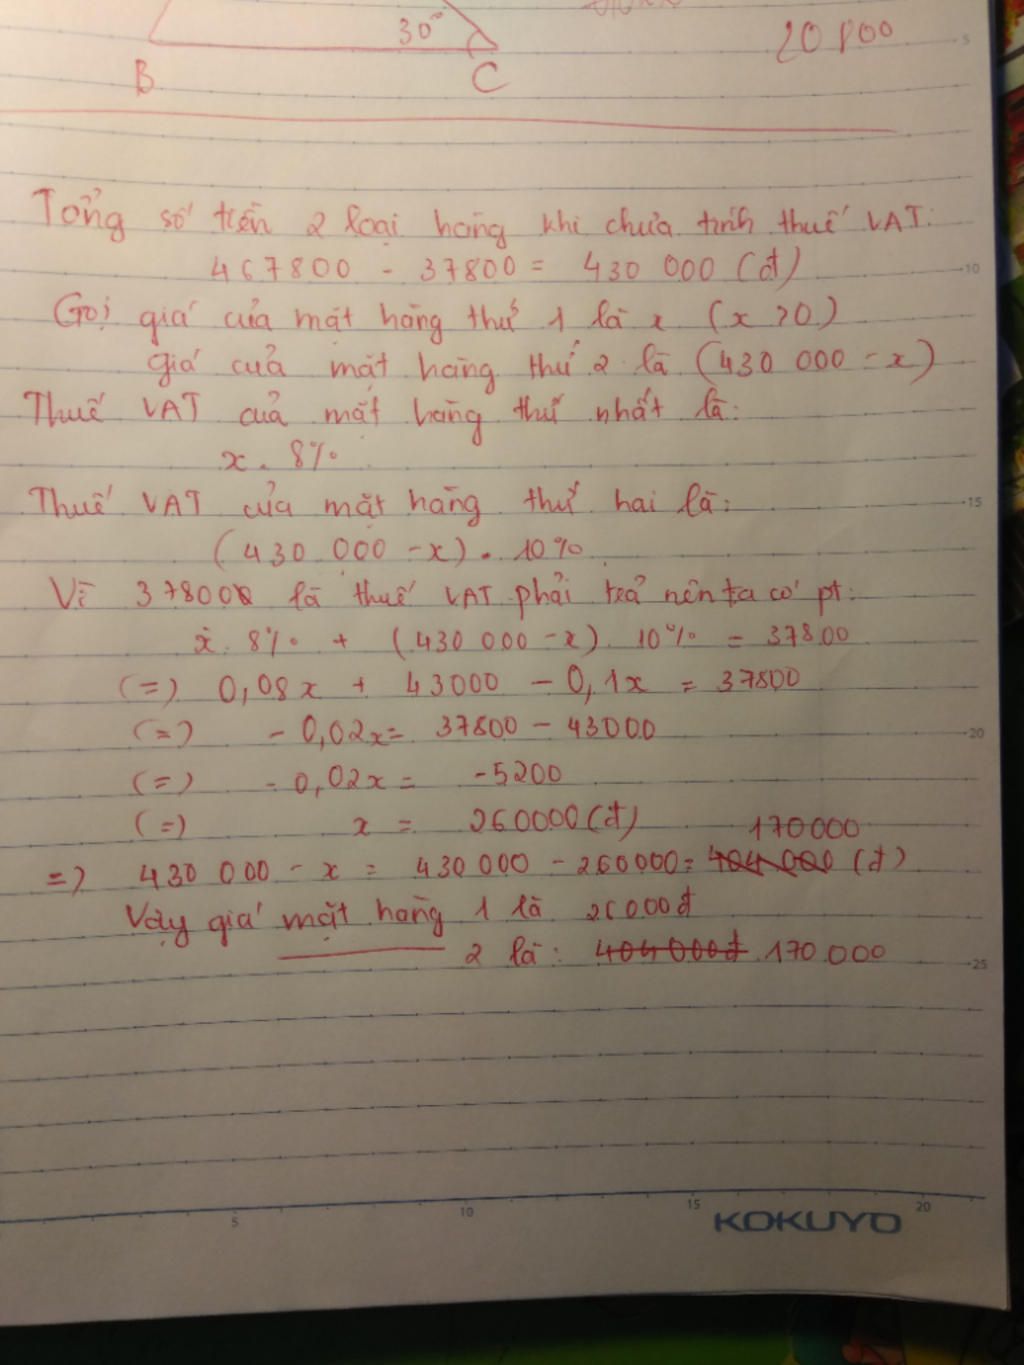 30°
B
C
20 800
5
Tổng số tiền 2 loại hàng khi chưa tính thuế VAT:
467800 - 37800 = 430 000 (đ)
10
Gọi giá của mặt hàng thứ 1 là x (x > 0)
giá của mặt hàng thứ 2 là (430 000 - x)
Thuế VAT của mặt hàng thứ nhất là:
x . 8%
Thuế VAT của mặt hàng thứ hai là:
15
(430 000 - x) . 10%
Vì 37800 là thuế VAT phải trả nên ta có pt:
x . 8% + (430 000 - x) . 10% = 37800
(=) 0,08x + 43000 - 0,1x = 37800
(=) - 0,02x = 37800 - 43000
20
(=) - 0,02x = -5200
(=) x = 260000 (đ)
170000
=) 430 000 - x = 430 000 - 260000 = 404 000 (đ)
Vậy giá mặt hàng 1 là 26000đ
2 là: 404 000đ 170.000
25
5
10
15
20
KOKUYO